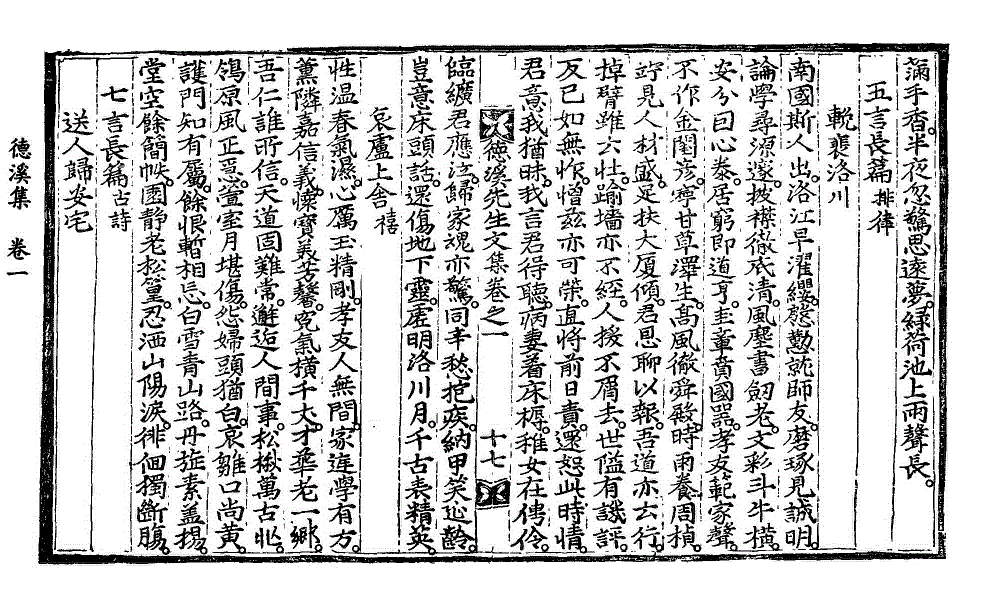 滿手香。半夜忽驚思遠夢。綠荷池上雨聲長。
五言長篇 排律
輓裵洛川
南國斯人出。洛江早濯纓。慇懃就師友。磨琢見誠明。
論學尋源邃。披襟徹底清。風塵書劒老。文彩斗牛橫。
安分曰心泰。居窮卽道亨。圭 賁國器。孝友範家聲。
不作金閨彦。寧甘草澤生。高風徹舜 。時雨養周楨。
竚見人材盛。足扶大厦傾。君恩聊以報。吾道亦云行。
掉臂雖云壯。踰墻亦不經。人援不屑去。世隘有譏評。
反已如無怍。憎玆亦可榮。直將前日責。還恕此時情。
君意我猶昧。我言君得聽。病妻着床褥。稚女在 伶
德溪先生文集卷之一 十七
臨纊君應泣。歸家魂亦驚。同 愁抱疾。納甲笑延齡。
豈意床頭話。還傷地下靈。虛明洛川月。千古表精英。
哀盧上舍 禧
性温春氣濕。心厲玉精剛。孝友人無間。家庭學有方。
薰隣嘉信義。 寶 芳馨。 氣橫千丈。才華老一鄉。
吾仁誰所信。天道固難常。邂逅人間事。松楸萬古 。
鴒原風正急。萱室月堪傷。怨婦頭猶白。哀雛口尚黃。
護門知有屬。餘恨暫相忘。白雪青山路。丹旌素盖揚。
堂空餘簡帙。園静老松篁。忍洒山陽淚。徘徊獨斷膓。
七言長篇 古詩
送人歸安宅
德溪集 卷一